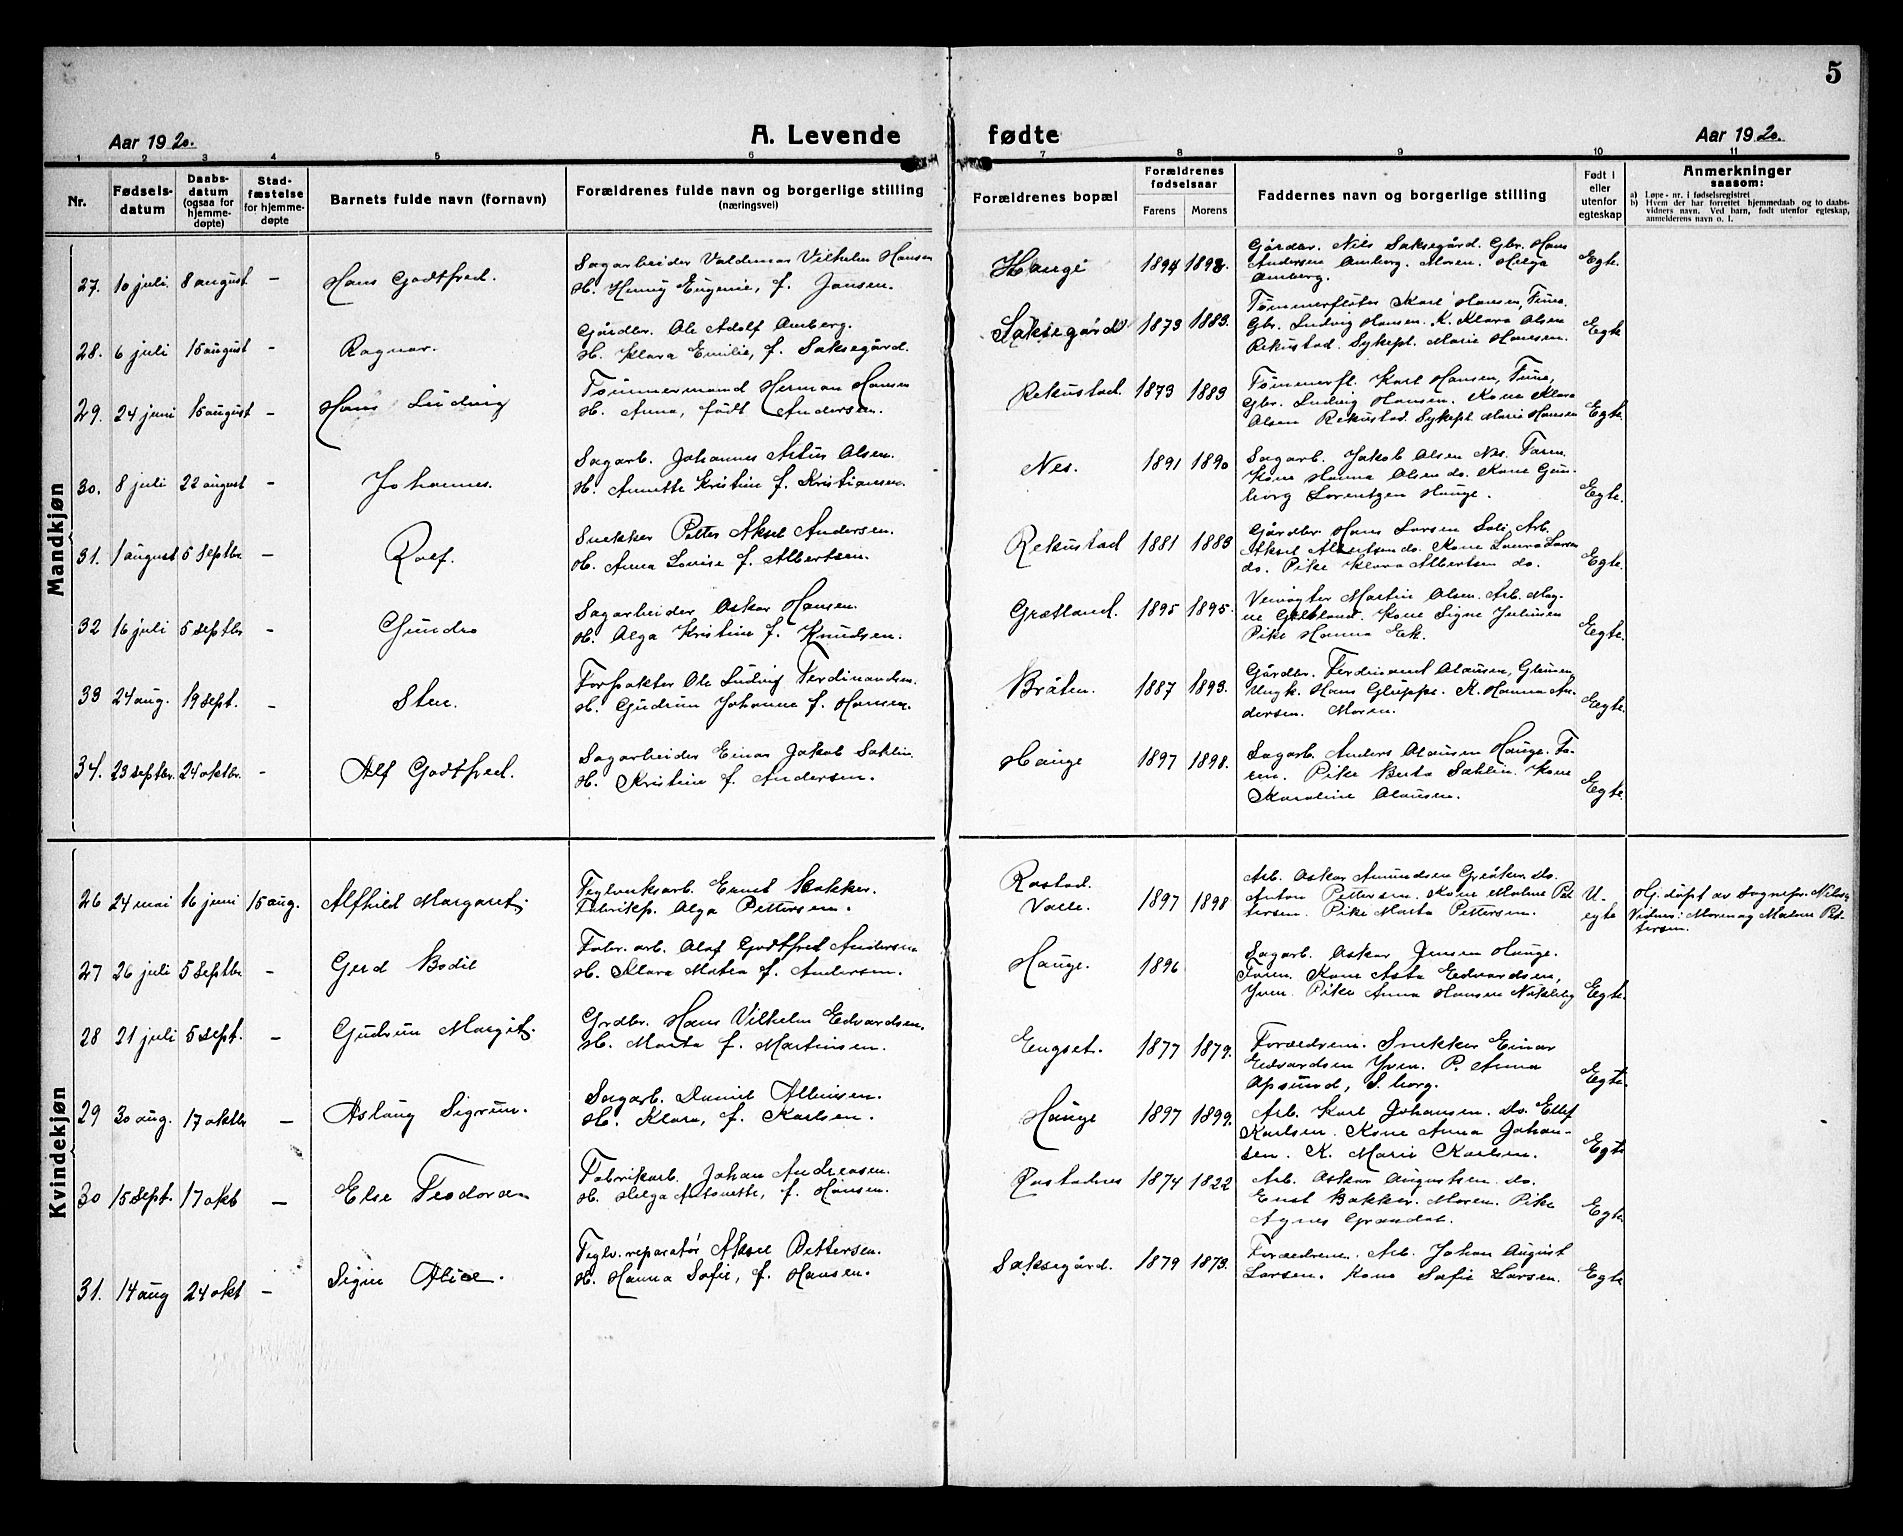 5
Aar 1920.
A. Levende fødte
Aar 1920.
1 2 3 4 5 6 7 8 9 10 11
Nr.
Fødsels-
datum
Daabs-
datum
(ogsaa for
hjemme-
døpte)
Stad-
fæstelse
for hjemme-
døpte
Barnets fulde navn (fornavn)
Forældrenes fulde navn og borgerlige stilling
(næringsvei)
Forældrenes bopæl
Forældrenes
fødselsaar
Farens Morens
Faddernes navn og borgerlige stilling
Født i
eller
utenfor
egteskap
Anmerkninger
saasom:
a) Løpe-nr. i fødselsregistret
b) Hvem der har forrettet hjemmedaab og to daabs-
vidners navn. Ved barn, født utenfor egteskap,
anmelderens navn o. l.
Mandkjøn
27. 10 juli 8 august - Hans Godtfred.
Sagarbeider Valdemar Vilhelm Hansen
H. Henny Eugenie, f. Jansen.
Hauge 1894 1898.
Gårdbr. Nils Saksegård. Gbr. Hans
Andersen Amberg. Moren. Helga
Amberg.
Egte.
28. 6 juli 15 august - Ragnar.
Gårdbr. Ole Adolf Amberg.
H. Klara Emilie, f. Saksegård.
Saksegård 1873 1883.
Tømmerfløter Karl Hansen, Tune.
Gbr. Ludvig Hansen. K. Klara Olsen
Rekustad. Sykepl. Marie Hansen.
Egte
29. 24 juni 15 august - Hans Ludvig
Tømmermand Herman Hansen
H. Anna, født Andersen.
Rekustad. 1873 1883
Tømmerfl. Karl Hansen, Tune,
Gbr. Ludvig Hansen. Kone Klara
Olsen Rekustad. Sykepl. Marie Hansen
Egte.
30. 8 juli 22 august - Johannes.
Sagarb. Johannes Artur Olsen.
H. Annette Kristine f. Kristiansen.
Nes. 1891 1890
Sagarb. Jakob Olsen Nes. Faren.
Kone Hanna Olsen do. Kone Gun-
borg Lorentzen Hauge.
Egte.
31. 1 august 5 septbr - Rolf.
Snekker Petter Aksel Andersen.
H. Anna Lovise f. Albertsen.
Rekustad 1881 1883
Gårdbr. Hans Larsen Soli. Arb.
Aksel Albertsen do. Kone Laura Larsen
do. Pike Klara Albertsen do.
Egte.
32 16 juli 5 septbr -
Sagarbeider Oskar Hansen.
H. Olga Kristine f. Knudsen.
Grætland. 1895 1895.
Veivogter Martin Olsen. Arb. Mag-
ne Grætland. Kone Signe Julinsen
Pike Hanna Eek.
Egte.
33 24 aug. 19 sept. - Sten.
Forpakter Ole Ludvig Ferdinandsen.
H. Gudrun Johanne f. Hansen.
Bråten. 1887 1893.
Gårdbr. Ferdinand Olausen, Glemmen
Ungk. Hans Gluppe. K. Hanna An-
dersen. Moren.
Egte.
34. 23 septbr. 24 oktbr. - Alf Godtfred.
Sagarbeider Einar Jakob Sahlin.
H. Kristine f. Andersen.
Hauge 1897 1898.
Sagarb. Anders Olausen Hauge. Fa-
ren. Pike Berta Sahlin. Kone
Karoline Olausen.
Egte.
Kvindekjøn
26 24 mai 16 juni 15 aug. Alfhild Margaret.
Teglverksarb. Ernst Bakker.
Fabrikp. Olga Pettersen.
Rostad.
Valle. 1897 1898
Arb. Oskar Amundsen Greåker. Do.
Anton Pettersen. Kone Malene Pet-
tersen. Pike Marta Pettersen.
U-
egte
Hj. døpt av sognepr.
Vidner: Moren og Malene Pet-
tersen.
27 26 juli 5 septbr - Gerd Bodil
Fabr. arb. Olaf Godtfred Andersen
H. Klara Matea f. Andersen.
Hauge. 1896
Sagarb. Oskar Jensen Hauge.
Faren. Kone Asta Edvardsen,
Yven. Pike Anna Hansen
Egte.
28 21 juli 5 sept. - Gudrun Margit.
Grdbr. Hans Vilhelm Edvardsen.
H. Marta f. Martinsen.
Engset. 1877 1879.
Forældrene. Snekker Einar
Edvardsen Yven. P. Anna
Opsund, S. borg.
Egte.
29 30 aug. 17 oktbr - Aslaug Sigrun.
Sagarb. Daniel Albinsen.
H. Klara, f. Karlsen.
Hauge 1897 1899.
Arb. Karl Johansen. do. Ellef
Karlsen. Kone Anna Johan-
sen. K. Marie Karlsen.
Egte
30 15 sept. 17 okb - Else Teodora
Fabrikarb. Johan Andreasen.
H. Helga Antonette, f. Hansen.
Rostadnes 1874 1822
Arb. Oskar Augustsen. do.
Enst Bakker. Moren. Pike
Agnes Grændal.
Egte
31. 14 aug 24 okt - Signe Alice.
Teglv. reparatør Aksel Pettersen.
H. Hanna Sofie, f. Hansen.
Saksegård. 1879 1873.
Forældrene. Arb. Johan August
Larsen. Kone Sofie Larsen.
Egte